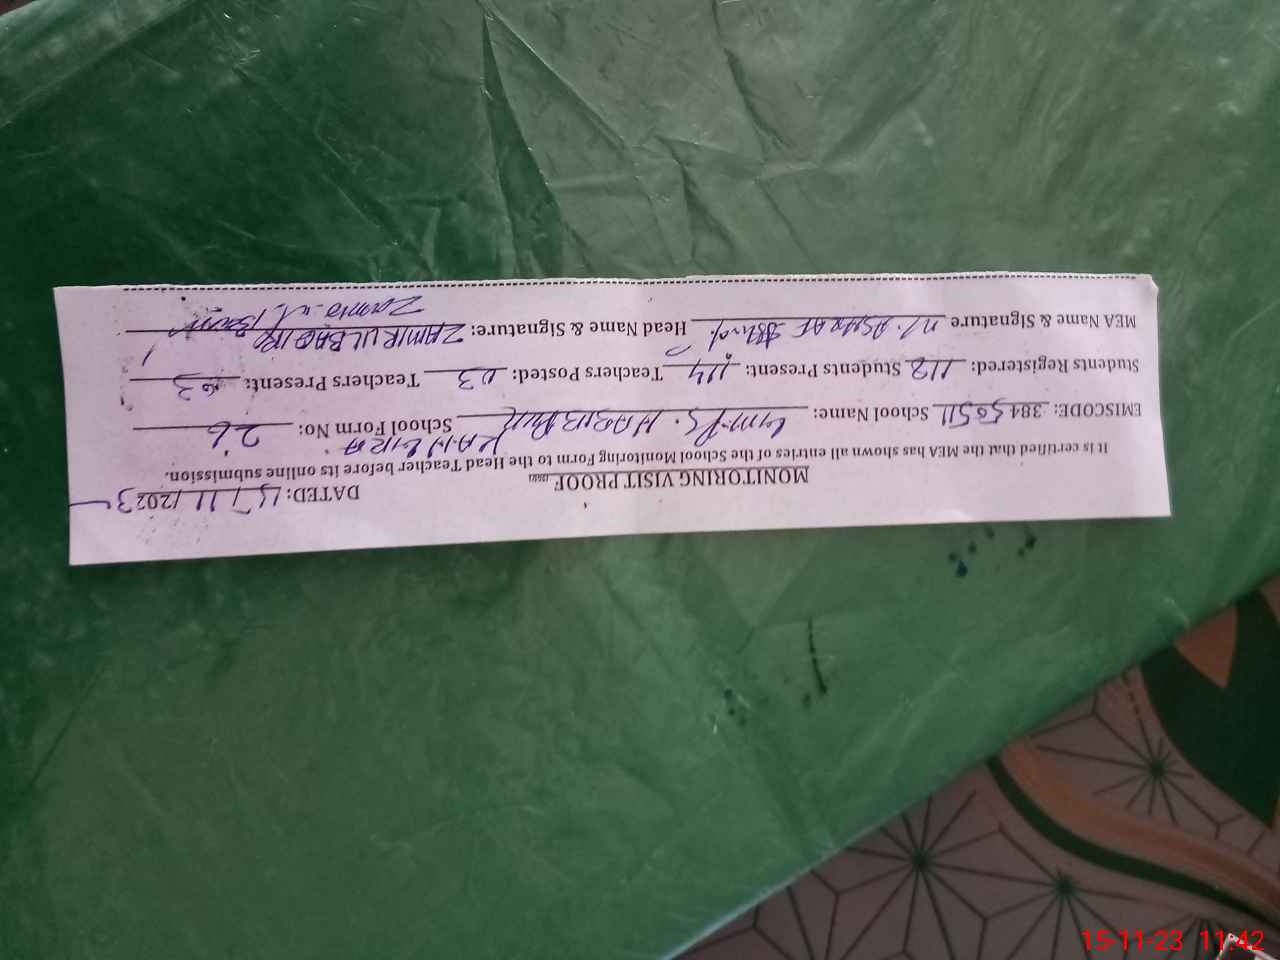 MONITORING VISIT PROOF
DATED: 15/11/2023
It is certified that the MEA has shown all entries of the School Monitoring Form to the Head Teacher before its online submission.
EMISCODE: 38450511 School Name: HABIB School Form No: 26
Students Registered: 118 Students Present: 114 Teachers Posted: 03 Teachers Present: 03
MEA Name & Signature M. ASHRAF Head Name & Signature: ZAMIR UL
15-11-23 11:42